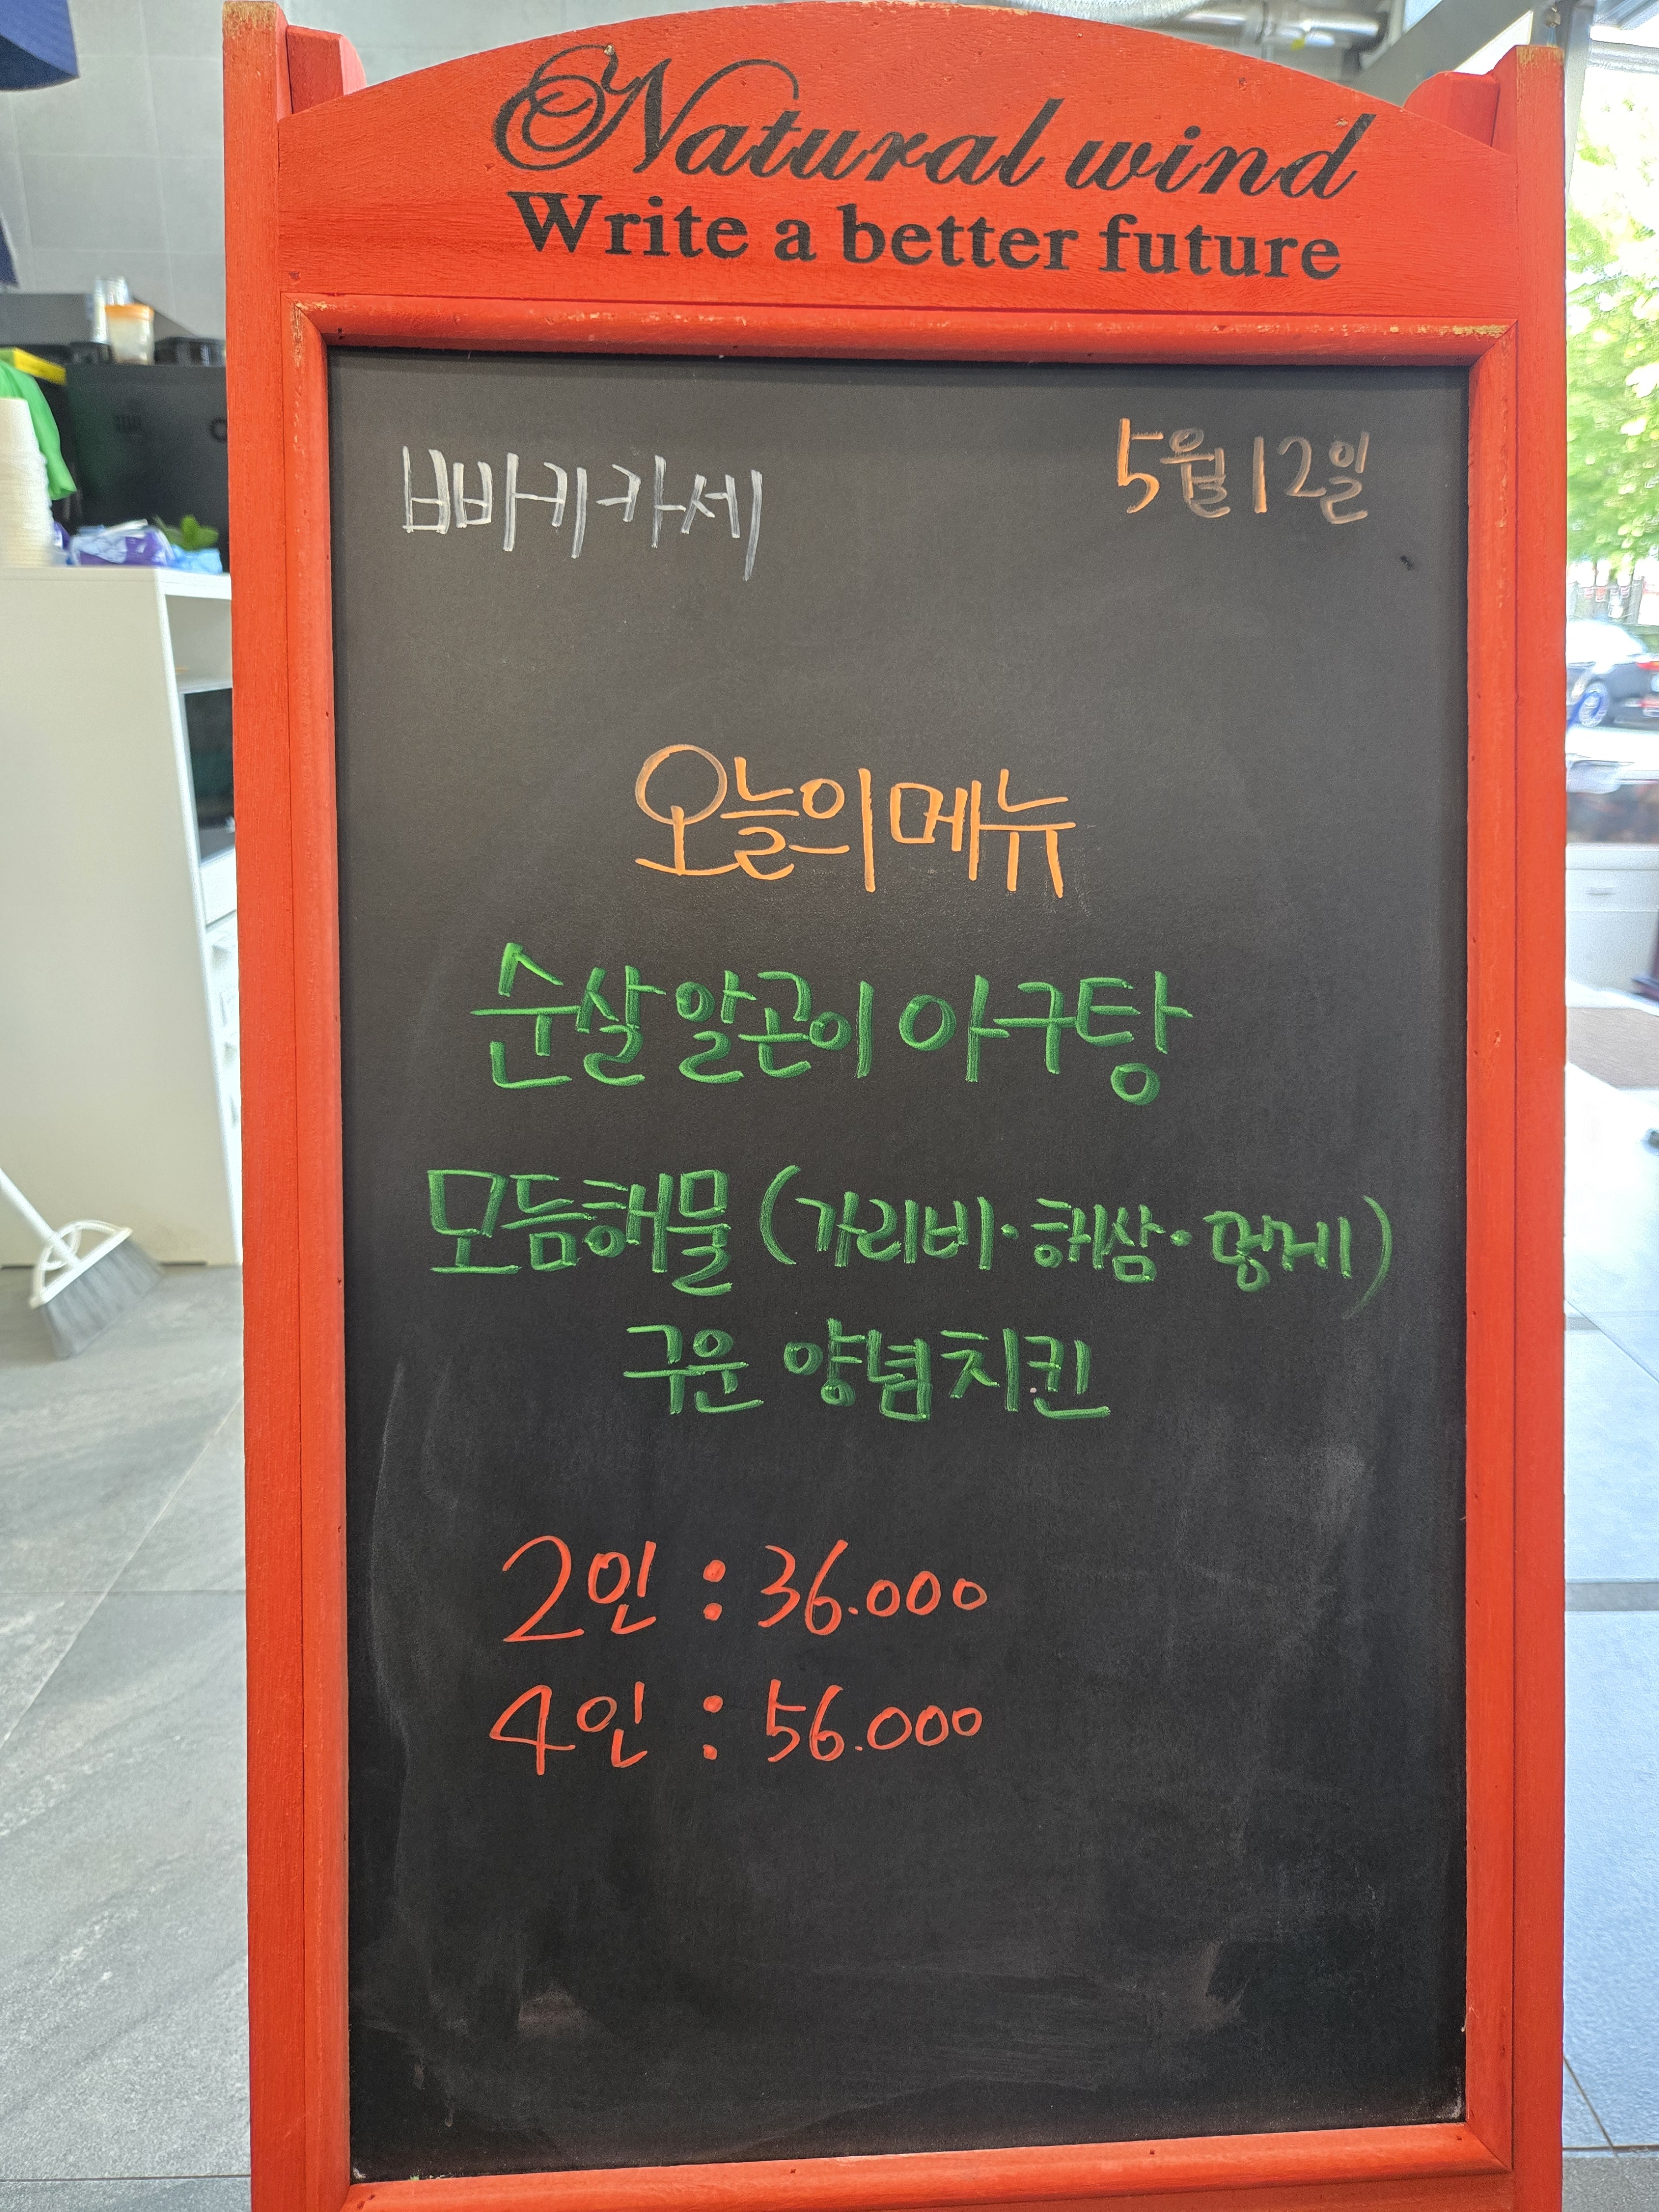 Natural wind
Write a better future
빠키카세 5월 12일
오늘의 메뉴
순살 알곤이 아구탕
모듬해물 (가리비·해삼·멍게)
구운 양념치킨
2인 : 36.000
4인 : 56.000